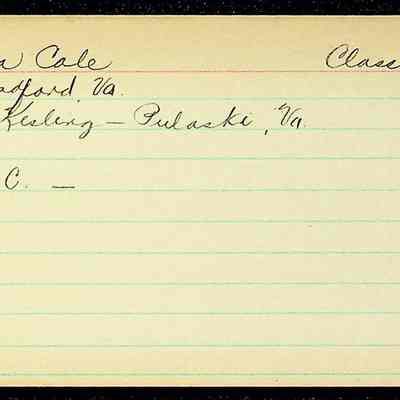 a Cole Class
adford, Va.
Kesling — Pulaski, Va.
C. —